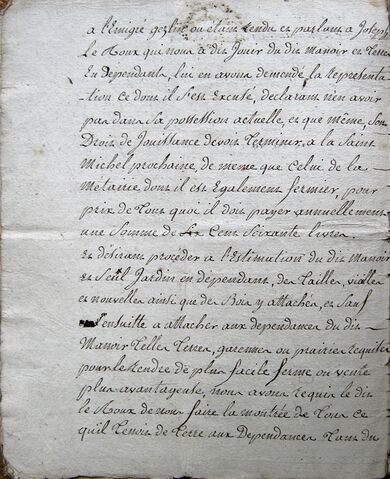 a l'Emigré gozlin ou étant rendu et parlant a Joseph
Le Roux qui nous a dit Jouir du dit manoir et Terres
En Dependants, lui en avons demendé la Representa
tion ce dont il s'est Excuté, declarant n'en avoir
pas dans sa possession actuelle, et que même, son
Droit de Jouissance devoit Terminer, a la Saint
Michel prochaine, de meme que Celui de la
Métairie dont il est Egalement fermier, pour
prix de Tout quoi il doit payer annuellement
une Somme de Six Cent Soixante livres.
Et désirant procéder a l'Estimation du dit Manoir
et Seul Jardin en dépendant, des Tailles, vieilles
et nouvelles ainsi que des Bois y attachés, et Sauf
Ensuitte a attacher aux dependances du dit
Manoir Telles Terres, garennes ou prairies requises
pour le Rendre de plus facile ferme ou vente
plus avantageuse, nous avons requis le dit
le Roux de nous faire la montrée de Tout ce
qu'il Tenoit de Terre aux Dependances Tant du